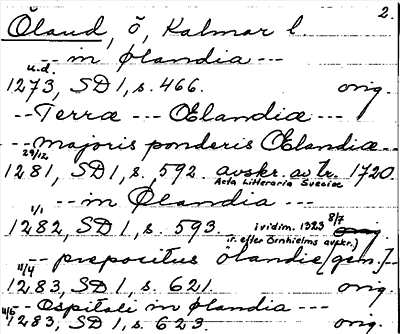 2.
Öland, ö, Kalmar l.
-- in Ølandia ---
u.d.
1273, SD 1, s. 466. orig.
-- Terræ --- Œlandiæ ---
-- majoris ponderis Œlandiæ --
29/12
1281, SD 1, s. 592. avskr. av tr. 1720.
Acta Litteraria Sveciæ
-- in Ølandia ---
1/1
1282, SD 1, s. 593. i vidim. 1323 8/7
(tr. efter Örnhielms avskr.)
-- prepositus olandie [gen.] --
11/4
1283, SD 1, s. 621. orig.
-- Ospitali in ølandia ---
11/6
1283, SD 1, s. 623. orig.